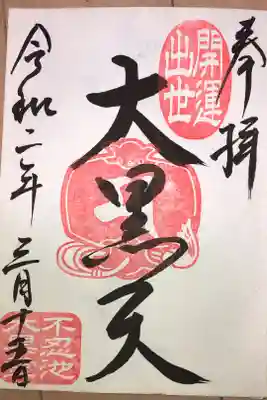 奉拝
開運
出世
大黒天
令和二年
三月十五日
不忍池
大黒天